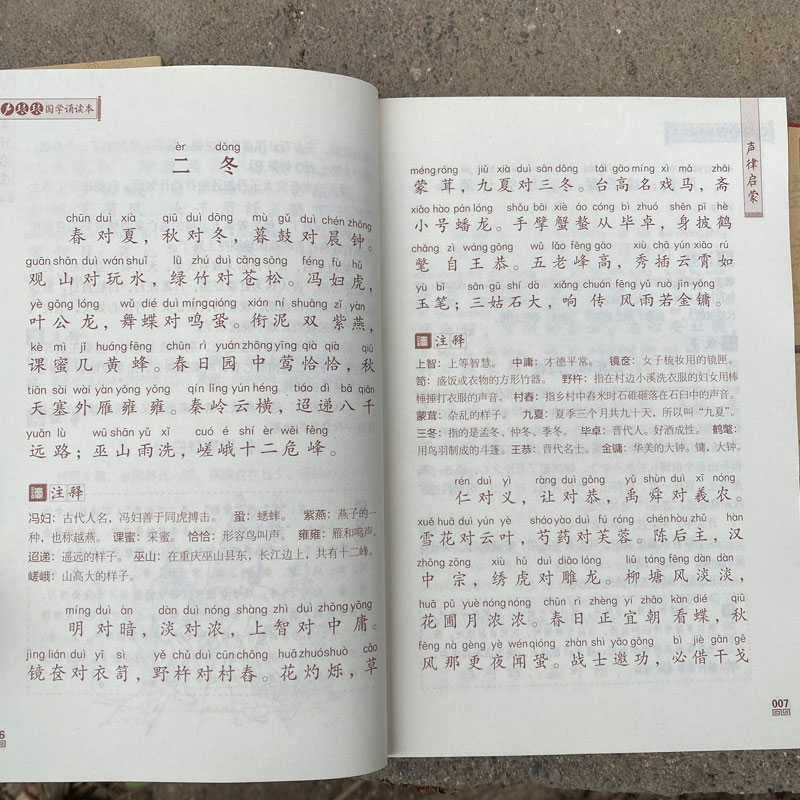 国学诵读本
èr dōng
二 冬
chūn duì xià qiū duì dōng mù gǔ duì chén zhōng
春对夏，秋对冬，暮鼓对晨钟。
guān shān duì wán shuǐ lǜ zhú duì cāng sōng féng fù hǔ
观山对玩水，绿竹对苍松。冯妇虎，
yè gōng lóng wǔ dié duì míng qióng xián ní shuāng zǐ yàn
叶公龙，舞蝶对鸣蛩。衔泥双紫燕，
kè mì jǐ huáng fēng chūn rì yuán zhōng yīng qià qià qiū
课蜜几黄蜂。春日园中莺恰恰，秋
tiān sài wài yàn yōng yōng qín lǐng yún héng tiáo dì bā qiān
天塞外雁雍雍。秦岭云横，迢递八千
yuǎn lù wū shān yǔ xǐ cuó é shí èr wēi fēng
远路；巫山雨洗，嵯峨十二危峰。
注释
冯妇：古代人名，冯妇善于同虎搏击。 蛩：蟋蟀。 紫燕：燕子的一
种，也称越燕。 课蜜：采蜜。 恰恰：形容鸟叫声。 雍雍：雁和鸣声。
迢递：遥远的样子。 巫山：在重庆巫山县东，长江边上，共有十二峰。
嵯峨：山高大的样子。
míng duì àn dàn duì nóng shàng zhì duì zhōng yōng
明对暗，淡对浓，上智对中庸。
jìng lián duì yī sì yě chǔ duì cūn chōng huā zhuó shuò cǎo
镜奁对衣笥，野杵对村舂。花灼烁，草
声律启蒙
méng róng jiǔ xià duì sān dōng tái gāo míng xì mǎ zhāi
蒙茸，九夏对三冬。台高名戏马，斋
xiǎo hào pán lóng shǒu bāi xiè áo cóng bì zhuó shēn pī hè
小号蟠龙。手擘蟹螯从毕卓，身披鹤
chǎng zì wáng gōng wǔ lǎo fēng gāo xiù chā yún xiāo rú
氅自王恭。五老峰高，秀插云霄如
yù bǐ sān gū shí dà xiǎng chuán fēng yǔ ruò jīn yōng
玉笔；三姑石大，响传风雨若金镛。
注释
上智：上等智慧。 中庸：才德平常。 镜奁：女子梳妆用的镜匣。
笥：盛饭或衣物的方形竹器。 野杵：指在村边小溪洗衣服的妇女用棒
棰捶打衣服的声音。 村舂：指乡村中舂米时石碓砸落在石臼中的声音。
蒙茸：杂乱的样子。 九夏：夏季三个月共九十天，所以叫“九夏”。
三冬：指的是孟冬、仲冬、季冬。 毕卓：晋代人。好酒成性。 鹤氅：
用鸟羽制成的斗篷。王恭：晋代名士。 金镛：华美的大钟。镛，大钟。
rén duì yì ràng duì gōng yǔ shùn duì xī nóng
仁对义，让对恭，禹舜对羲农。
xuě huā duì yún yè sháo yào duì fú róng chén hòu zhǔ hàn
雪花对云叶，芍药对芙蓉。陈后主，汉
zhōng zōng xiù hǔ duì diāo lóng liǔ táng fēng dàn dàn
中宗，绣虎对雕龙。柳塘风淡淡，
huā pǔ yuè nóng nóng chūn rì zhèng yí zhāo kàn dié qiū
花圃月浓浓。春日正宜朝看蝶，秋
fēng nà gèng yè wén qióng zhàn shì yāo gōng bì jiè gān gē
风那更夜闻蛩。战士邀功，必借干戈
007